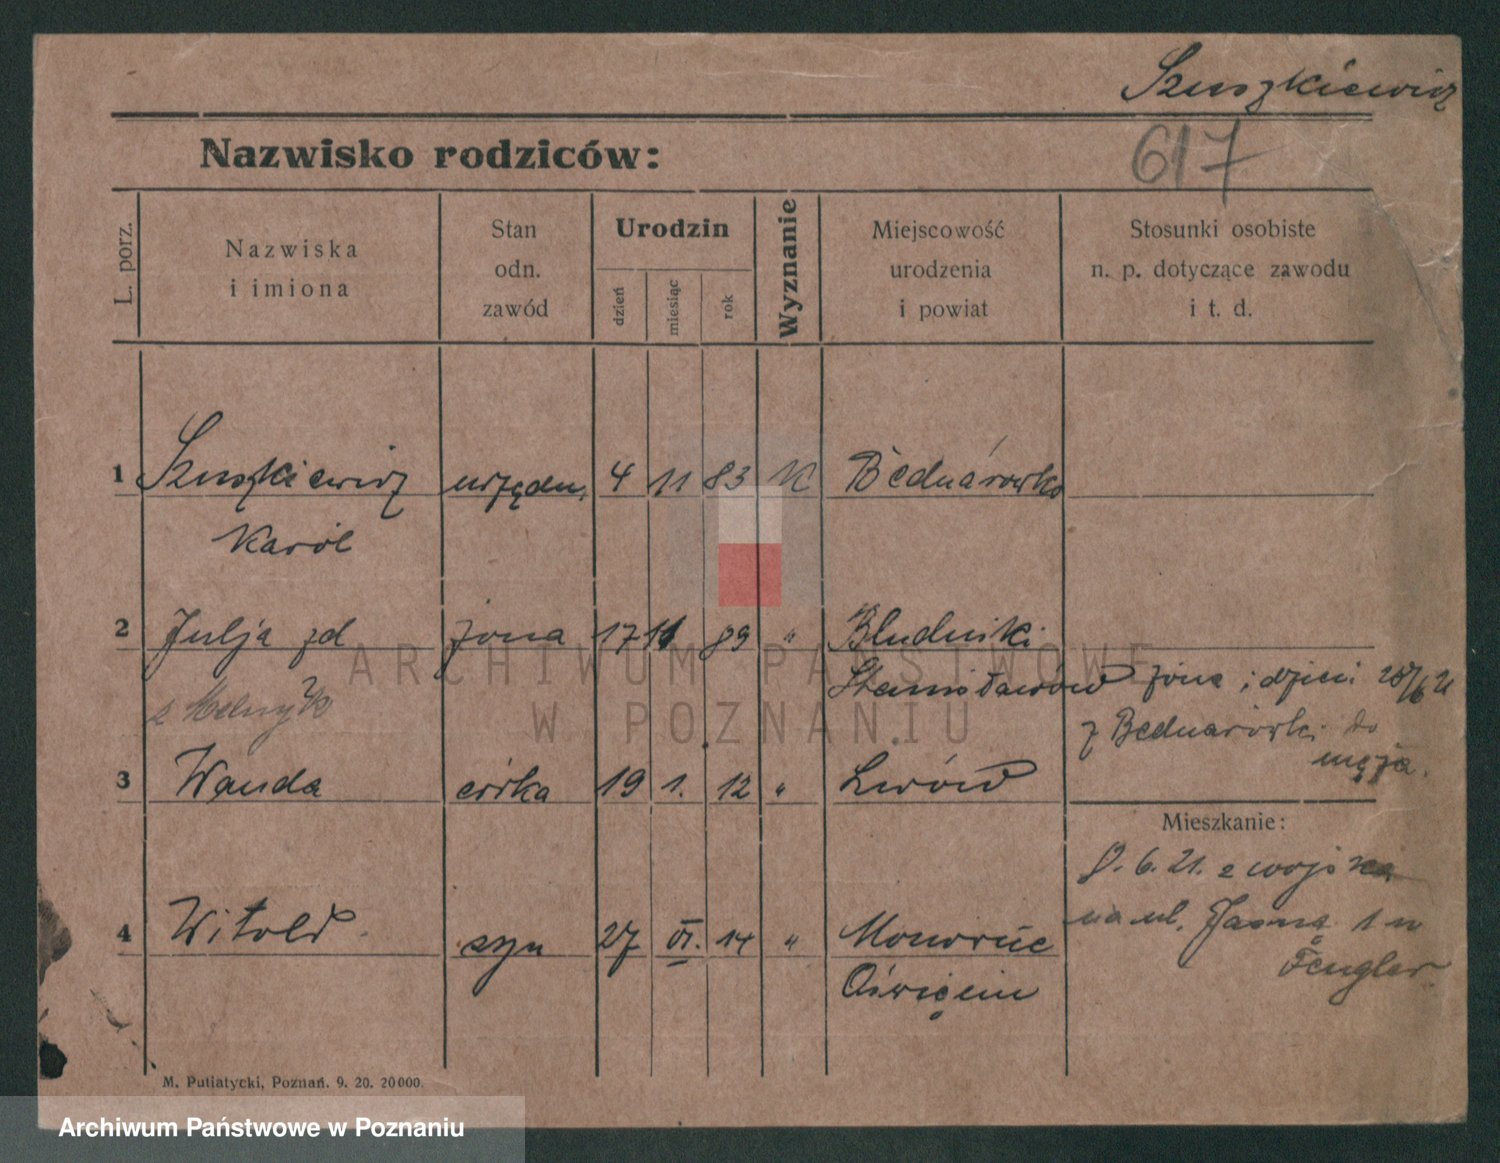 Szuszkiewicz
617
Nazwisko rodziców:
L. porz.
Nazwiska
i imiona
Stan
odn.
zawód
Urodzin
dzień
miesiąc
rok
Wyznanie
Miejscowość
urodzenia
i powiat
Stosunki osobiste
n. p. dotyczące zawodu
i t. d.
1 Szuszkiewicz urzędn. 4 11 83 K Bednarówka
Karol
2 Julja zd żona 17 11 89 " Bludniki
z Melnyk Stanisławów żona i dzieci 28/6 21
z Bednarówki do
męża.
3 Wanda córka 19 1. 12 " Lwów
Mieszkanie:
9. 6. 21. z wojska
na ul. Jasną 1 n
Fengler
4 Witold syn 27 VI. 14 " Monowice
Oświęcim
M. Putiatycki, Poznań. 9. 20. 20000.
ARCHIWUM PAŃSTWOWE
W POZNANIU
Archiwum Państwowe w Poznaniu